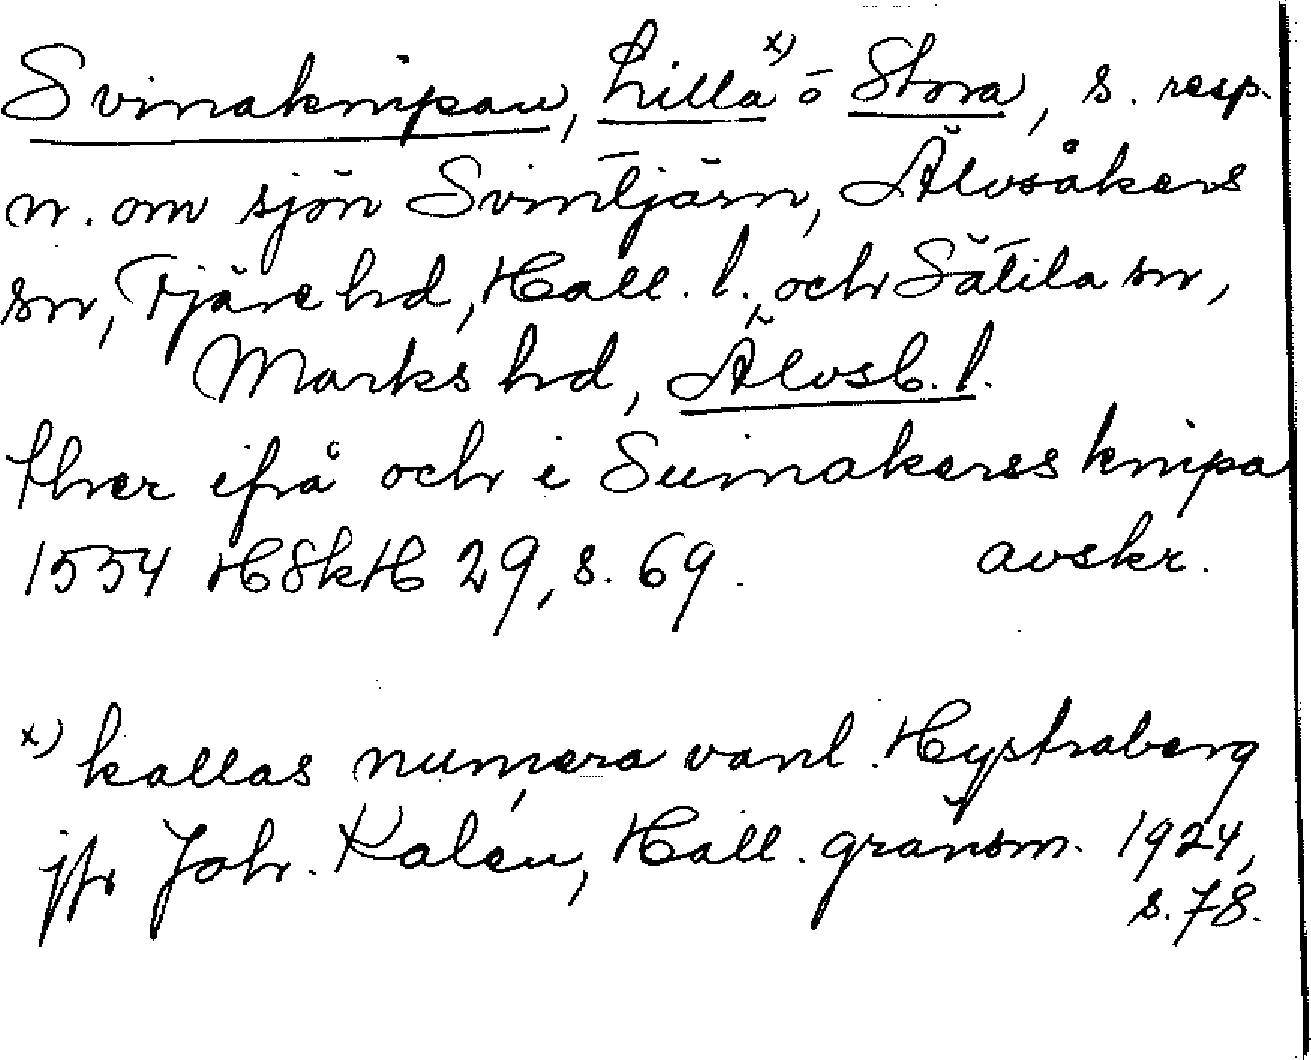 Svinaknipan, Lilla x) o Stora, s. resp.
n. om sjön Svintjärn, Älvsåkers
sn, Fjäre hd, Hall. l., och Sätila sn,
Marks hd, Älvsb. l.
ther ifrå och i Suinakerss knipa
1554 HSkH 29, s. 69. avskr.
x) kallas numera vanl. Hystraberg
jfr Joh. Kalén, Hall. gränsm. 1924,
s. 78.